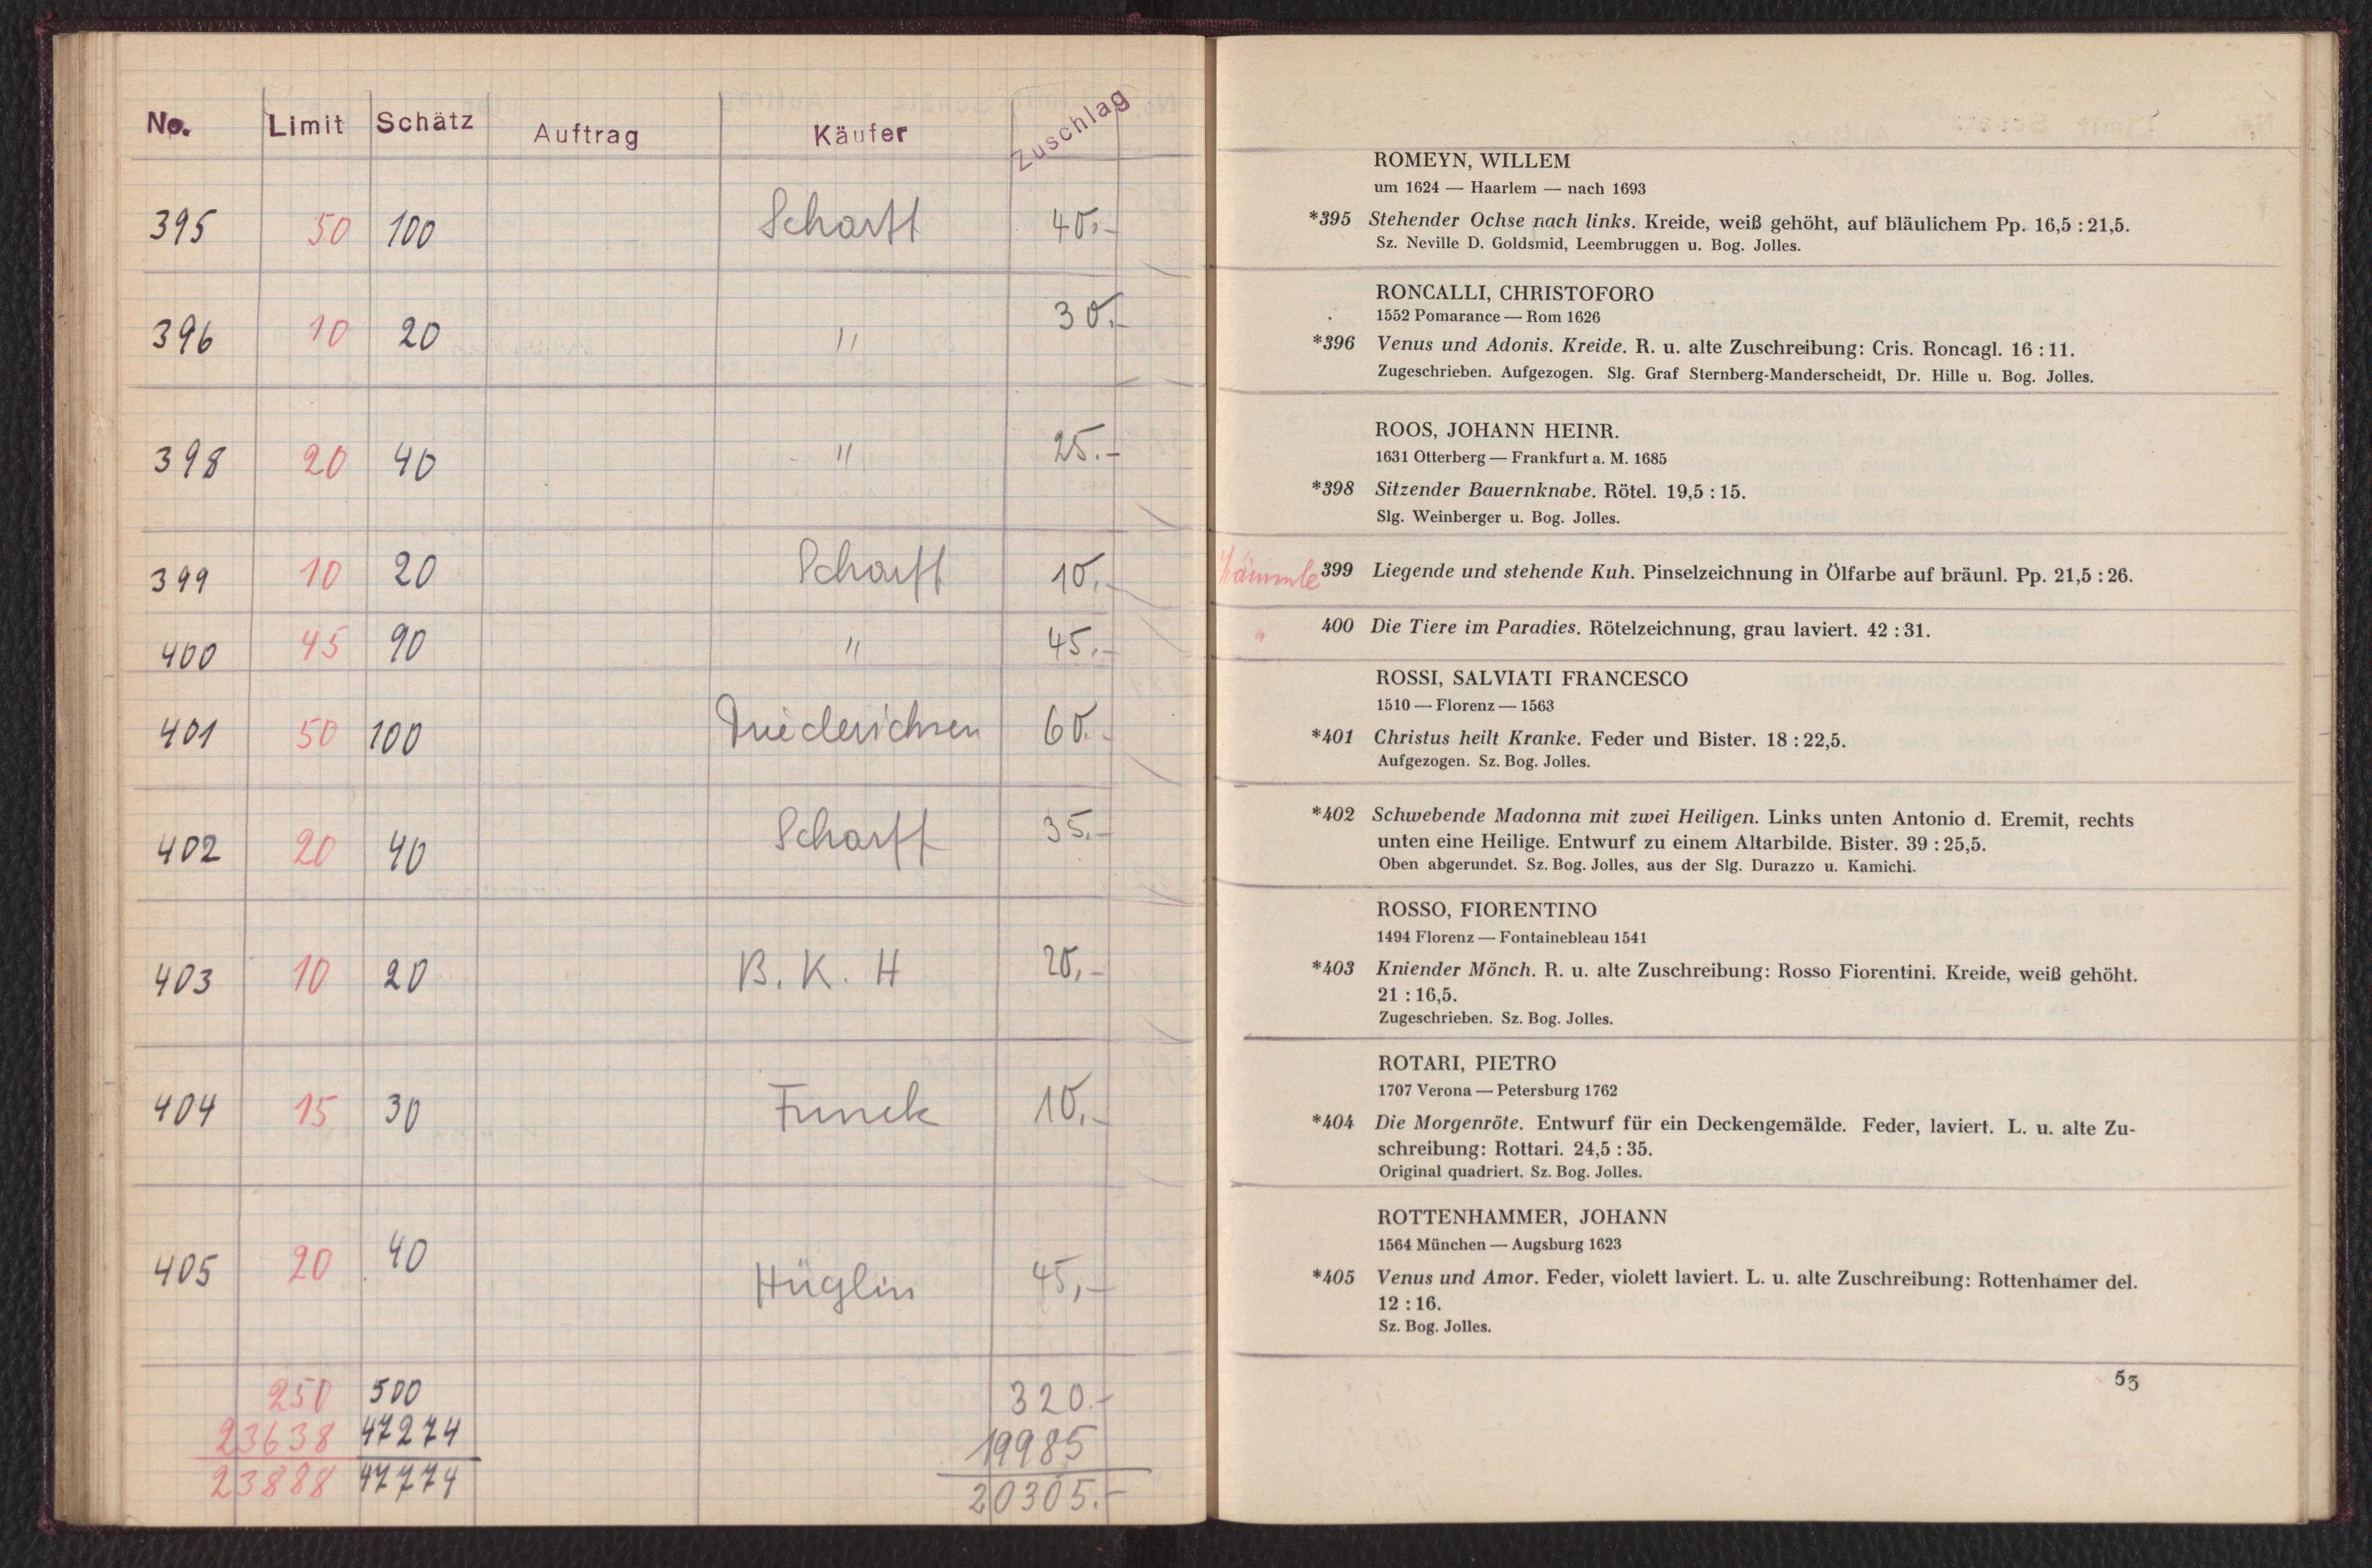 No. Limit Schätz Auftrag Käufer Zuschlag
395 50 100 Scharff 40.-
396 10 20 " 30.-
398 20 40 " 25.-
399 10 20 Scharff 10.-
400 45 90 " 45.-
401 50 100 60.-
402 20 40 Scharff 35.-
403 10 20 B. K. H 20,-
404 15 30 Funck 10.-
405 20 40 Hüglin 45,-
250 500 320.-
23638 47274 19985
23888 47774 20305.-
ROMEYN, WILLEM
um 1624 — Haarlem — nach 1693
*395 Stehender Ochse nach links. Kreide, weiß gehöht, auf bläulichem Pp. 16,5 : 21,5.
Sz. Neville D. Goldsmid, Leembruggen u. Bog. Jolles.
RONCALLI, CHRISTOFORO
1552 Pomarance — Rom 1626
*396 Venus und Adonis. Kreide. R. u. alte Zuschreibung: Cris. Roncagl. 16 : 11.
Zugeschrieben. Aufgezogen. Slg. Graf Sternberg-Manderscheidt, Dr. Hille u. Bog. Jolles.
ROOS, JOHANN HEINR.
1631 Otterberg — Frankfurt a. M. 1685
*398 Sitzender Bauernknabe. Rötel. 19,5 : 15.
Slg. Weinberger u. Bog. Jolles.
399 Liegende und stehende Kuh. Pinselzeichnung in Ölfarbe auf bräunl. Pp. 21,5 : 26.
" 400 Die Tiere im Paradies. Rötelzeichnung, grau laviert. 42 : 31.
ROSSI, SALVIATI FRANCESCO
1510 — Florenz — 1563
*401 Christus heilt Kranke. Feder und Bister. 18 : 22,5.
Aufgezogen. Sz. Bog. Jolles.
*402 Schwebende Madonna mit zwei Heiligen. Links unten Antonio d. Eremit, rechts
unten eine Heilige. Entwurf zu einem Altarbilde. Bister. 39 : 25,5.
Oben abgerundet. Sz. Bog. Jolles, aus der Slg. Durazzo u. Kamichi.
ROSSO, FIORENTINO
1494 Florenz — Fontainebleau 1541
*403 Kniender Mönch. R. u. alte Zuschreibung: Rosso Fiorentini. Kreide, weiß gehöht.
21 : 16,5.
Zugeschrieben. Sz. Bog. Jolles.
ROTARI, PIETRO
1707 Verona — Petersburg 1762
*404 Die Morgenröte. Entwurf für ein Deckengemälde. Feder, laviert. L. u. alte Zu-
schreibung: Rottari. 24,5 : 35.
Original quadriert. Sz. Bog. Jolles.
ROTTENHAMMER, JOHANN
1564 München — Augsburg 1623
*405 Venus und Amor. Feder, violett laviert. L. u. alte Zuschreibung: Rottenhamer del.
12 : 16.
Sz. Bog. Jolles.
53